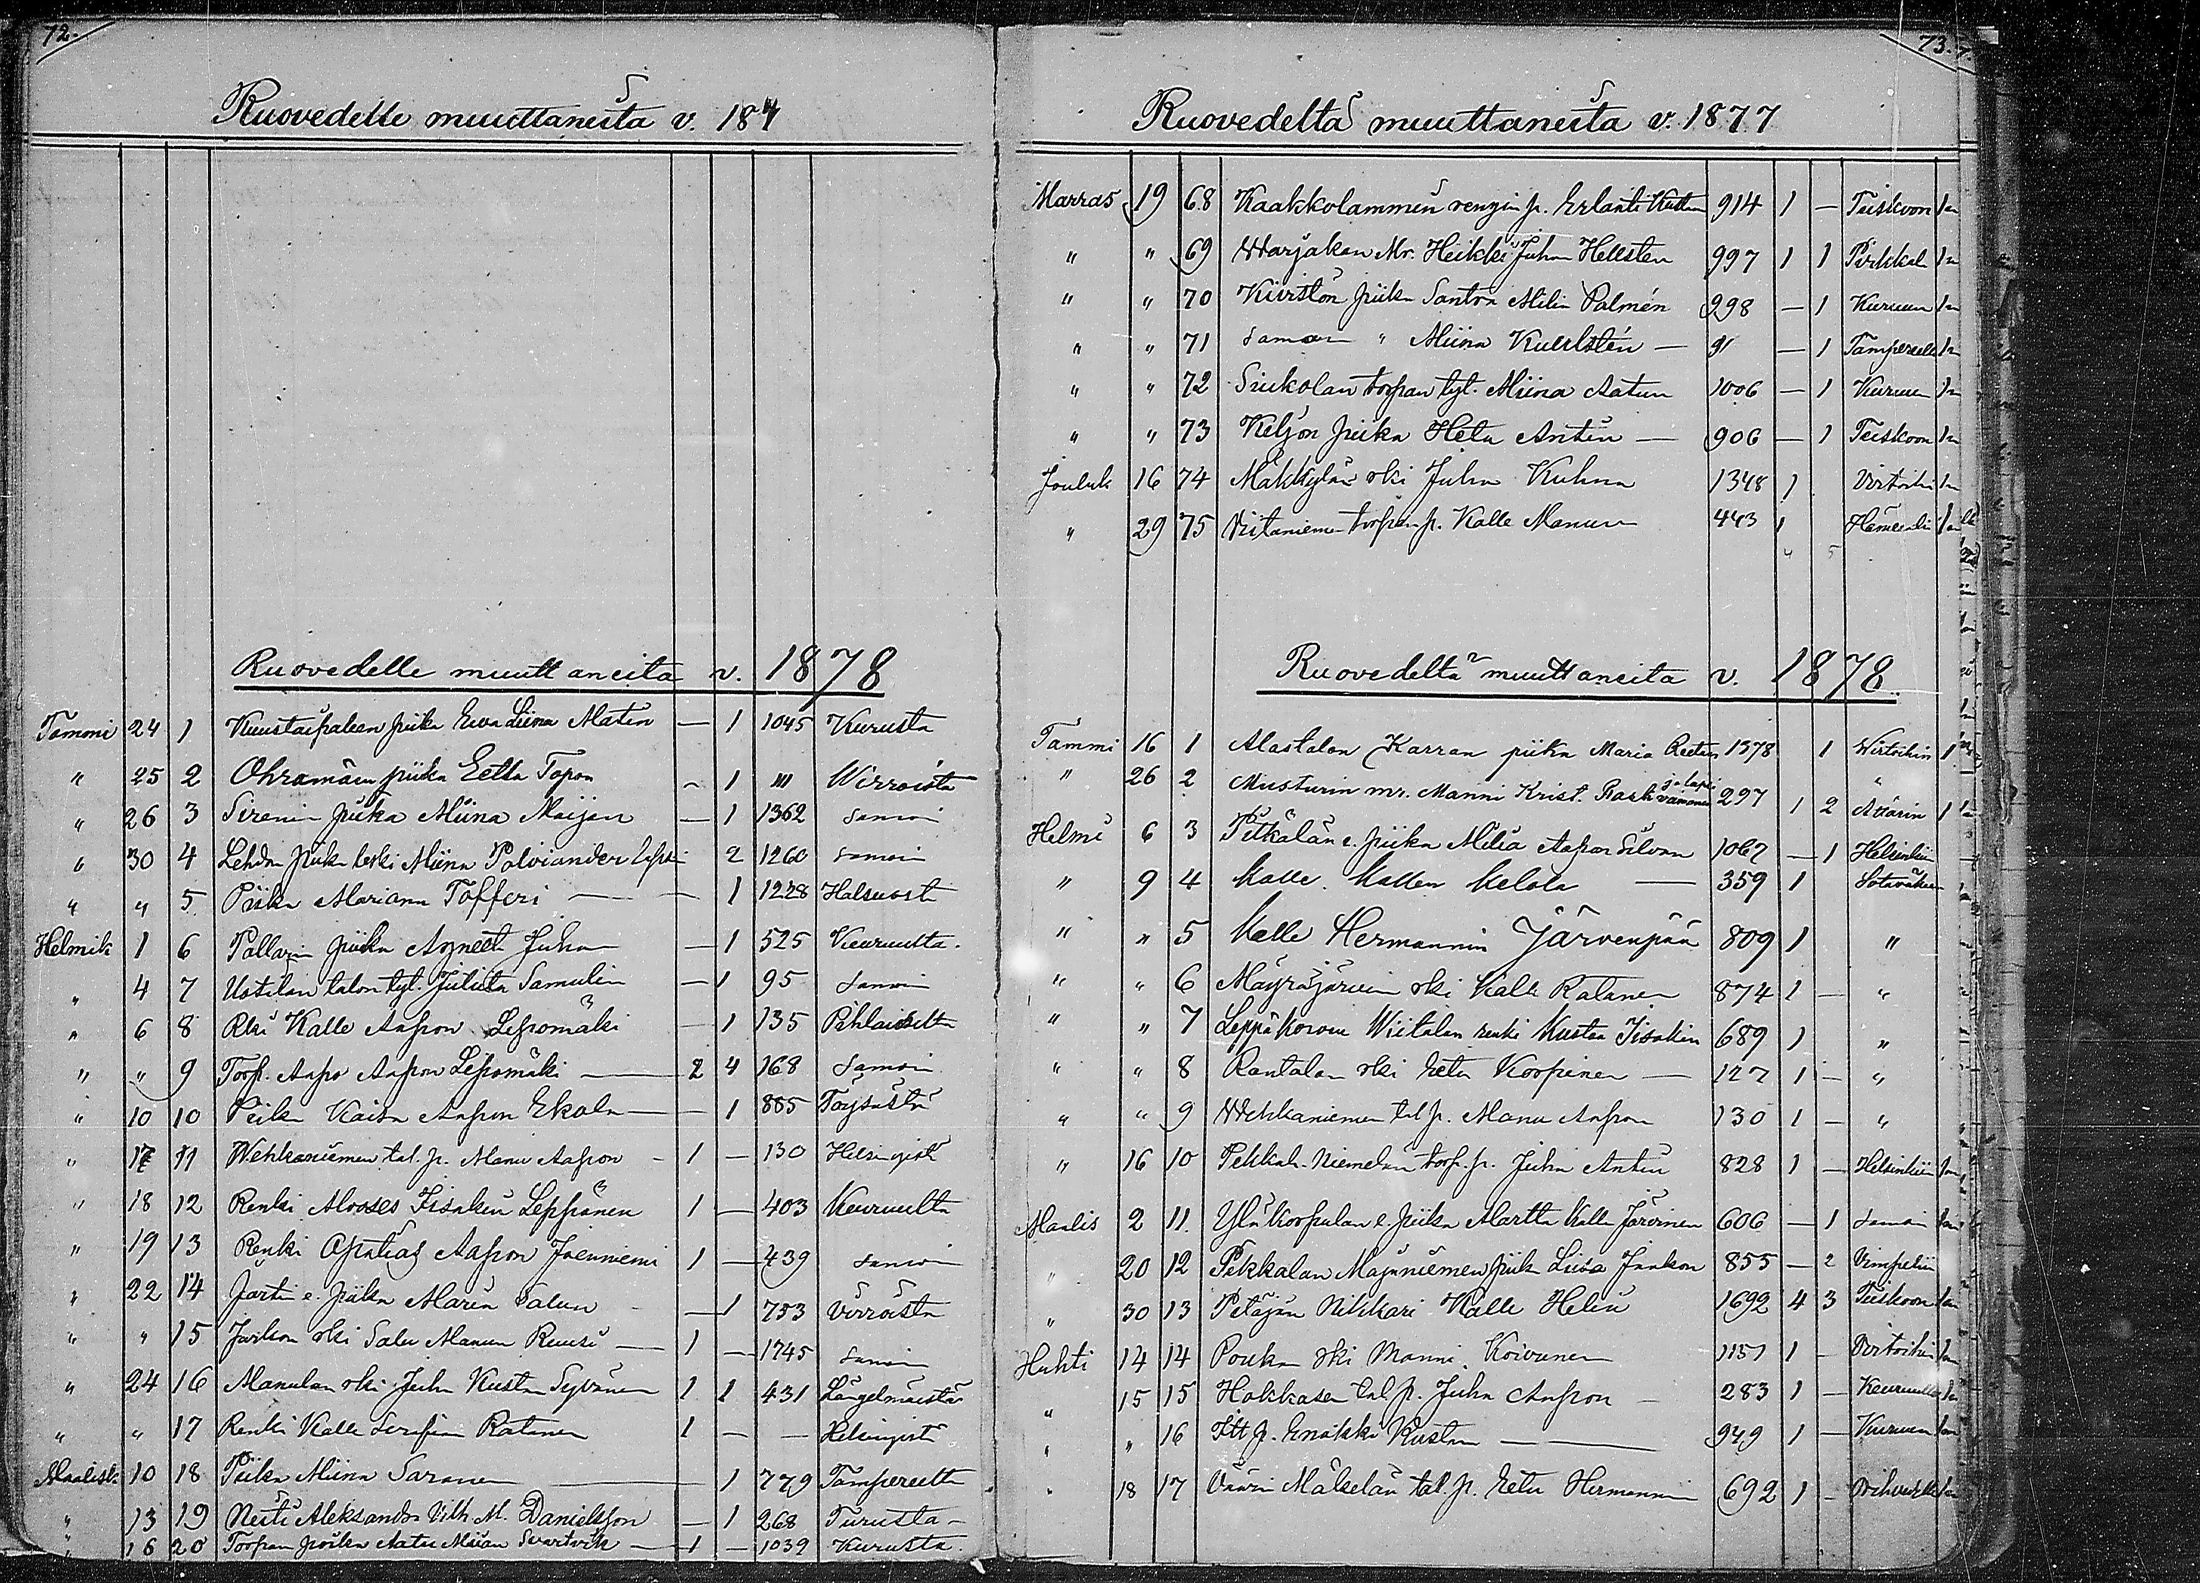 72.
Ruovedelle muuttaneita v. 187
Ruovedelle muuttaneita v. 1878
Tammi 24 1 piika Ewa Liina Matin — 1 1045 Kurusta
" 25 2 Ohramäen piika Eetla Topon - 1 "" Wirroista
" 26 3 Sirenin piika Miina Maijan — 1 1362 Samoin
" 30 4 Lehdon piika leski Miina Polviander lapsi 2 1260 Samoin
" " 5 Piika Mariana Tofferi — 1 1228
Helmik 1 6 piika Agneet Juhan — 1 525 Keuruulta.
" 4 7 Uotilan talon tyt. Juliita Samulin — 1 95 Samoin
" 6 8 Rki Kalle Aapon Lepomäki — 1 135 Pihlaiselta
" " 9 Torp. Aapo Aapon Lepomäki — 2 4 168 Samoin
" 10 10 Piika Kaisa Aapon Ekola — — 1 885 Töysästä
" 17 11 Wehkaniemen tal. p. Manu Aapon - 1 — 130 Helsingistä
" 18 12 Renki Mooses Iisakin Leppänen 1 — 403 Keuruulta
" 19 13 Renki Aapon Joenniemi 1 — 439 Samoin
" 22 14 e. piika Maria Salun — 1 753 Virroista
" " 15 rki Salu Manun Ruusi — 1 — 1745 Samoin
" 24 16 Manulan rki Juha Kusta Sylvänen 1 1 431 Längelmäeltä
" " 17 Renki Kalle Serafia Ratanen 1 — — Helsingistä
Maalisk 10 18 Piika Miina Saranen — 1 779 Tampereelta
" 13 19 Neiti Aleksandra Vilh. M. Danielsson — 1 268 Turusta -
" 16 20 Torpan poika Aatu Miinan Svartvik — 1 — 1039 Kurusta.
73.
Ruovedeltä muuttaneita v. 1877
Marras 19 68 Kaakkolammin rengin p. Erlanti Kustan 914 1 — Teiskoon
" " 69 Warjakan Mr. Heikki Juhan Hellsten 997 1 1 Pirkkal
" " 70 Kiviston piika Santra Milia Palmén 998 — 1 Kuruun
" " 71 Samoin " Miina Kuhlstén — " — 1 Tampereelle
" " 72 Siukolan torpan tyt. Miina Aatun 1006 — 1 Kuruun
" " 73 Keljon piika Heta Antin — 906 — 1 Teiskoon
Jouluk 16 74 Mäkkylän rki Juha Kuhna 1348 1 Virtoihin
" 29 75 Viitaniemen torpan p. Kalle Manun 443 1
Ruovedeltä muuttaneita v. 1878.
Tammi 16 1 Alastalon Karran piika Maria Reetan 1378 1 Wirtoihin 1
" 26 2 Musturin mr. Manni Krist. Rask ja lapsi vaimonen 297 1 2 Ätäriin 1
Helmi 6 3 Pitkälän e. piika Milia Aapon Silvan 1067 — 1 Helsinkiin
" 9 4 Kalle Kallen Kelola — 359 1 Sotaväkeen
" " 5 Kalle Hermannin Järvenpää 809 1 "
" " 6 Mäyräjärvin rki Kalle Ratanen 874 1 — "
" " 7 Leppäkorven Wiitalan renki Kustaa Iisakin 689 1 "
" " 8 Rantalan rki Eetu Korpinen — 127 1 — "
" " 9 Wehkaniemen tal. p. Manu Aapon 130 1 — "
" 16 10 Pekkal. Niemelän torp. p. Juha Antin 828 1 — Helsinkiin
Maalis 2 11. Ylä Korpulan e. piika Martta Kalle Järvinen 606 — 1 Samoin
" 20 12 Pekkalan Majaniemen piik Liisa Jaakon 855 — 2 Vimpeliin
" 30 13 Petäjän Nikkari Kalle Helin 1692 4 3 Teiskoon
Huhti 14 14 Pouka rki Manni Koivunen 1151 1 — Virtoihin
" 15 15 Hokkasen tal. p. Juha Aapon — 283 1 — Keuruulle
" " 16 Itt p. Enokki Kustan — 949 1 — Kuruun
" 18 17 Väärin Mälselän tal. p. Eetu Hermannin 692 1 —